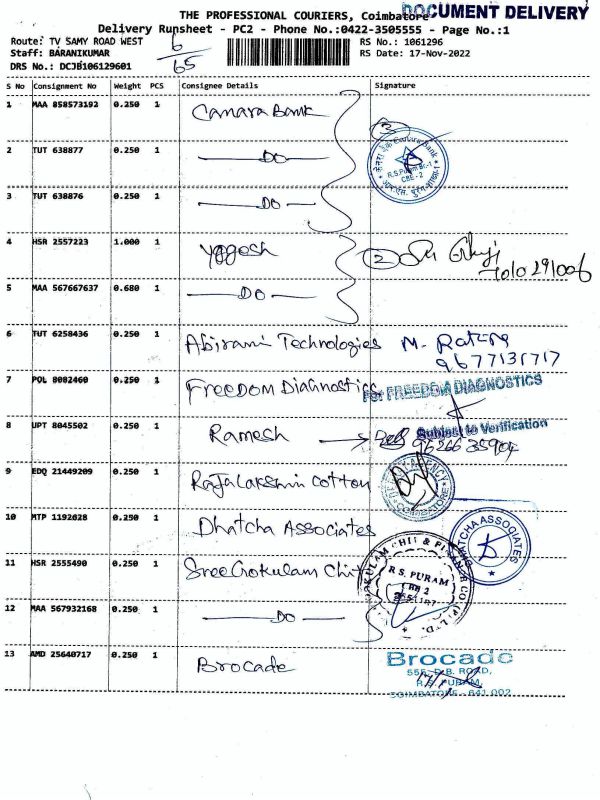 DOCUMENT DELIVERY
THE PROFESSIONAL COURIERS, Coimbatore
Delivery Runsheet - PC2 - Phone No.:0422-3505555 - Page No.:1
Route: TV SAMY ROAD WEST
6
RS No.: 1061296
Staff: BARANIKUMAR
65
RS Date: 17-Nov-2022
DRS No.: DCJB106129601
S No Consignment No Weight PCS Consignee Details Signature
1 MAA 858573192 0.250 1 Canara Bank
3
Canara Bank
R.S.Puram Br.-1
CBE - 2
2 TUT 638877 0.250 1 DO
3 TUT 638876 0.250 1 DO
4 HSR 2557223 1.000 1 Yogesh 2
5 MAA 567667637 0.680 1 DO
6 TUT 6258436 0.250 1 Abirami Technologies
9677131717
7 POL 8082460 0.250 1 Freedom Diagnostics For FREEDOM DIAGNOSTICS
Subject to Verification
8 UPT 8045502 0.250 1 Ramesh
9 EDQ 21449209 0.250 1 Rajalakshmi Cotton
AGENCY
COIMBATORE
10 MTP 1192028 0.250 1 Dhatcha Associates
DHATCHA ASSOCIATES
11 HSR 2555490 0.250 1 Sree Gokulam Chit
GOKULAM CHIT & FINANCE CO (P) LTD.
R.S. PURAM
12 MAA 567932168 0.250 1 DO
13 AMD 25640717 0.250 1 Brocade Brocade
555, D.B. ROAD,
R.S. PURAM,
COIMBATORE - 641 002